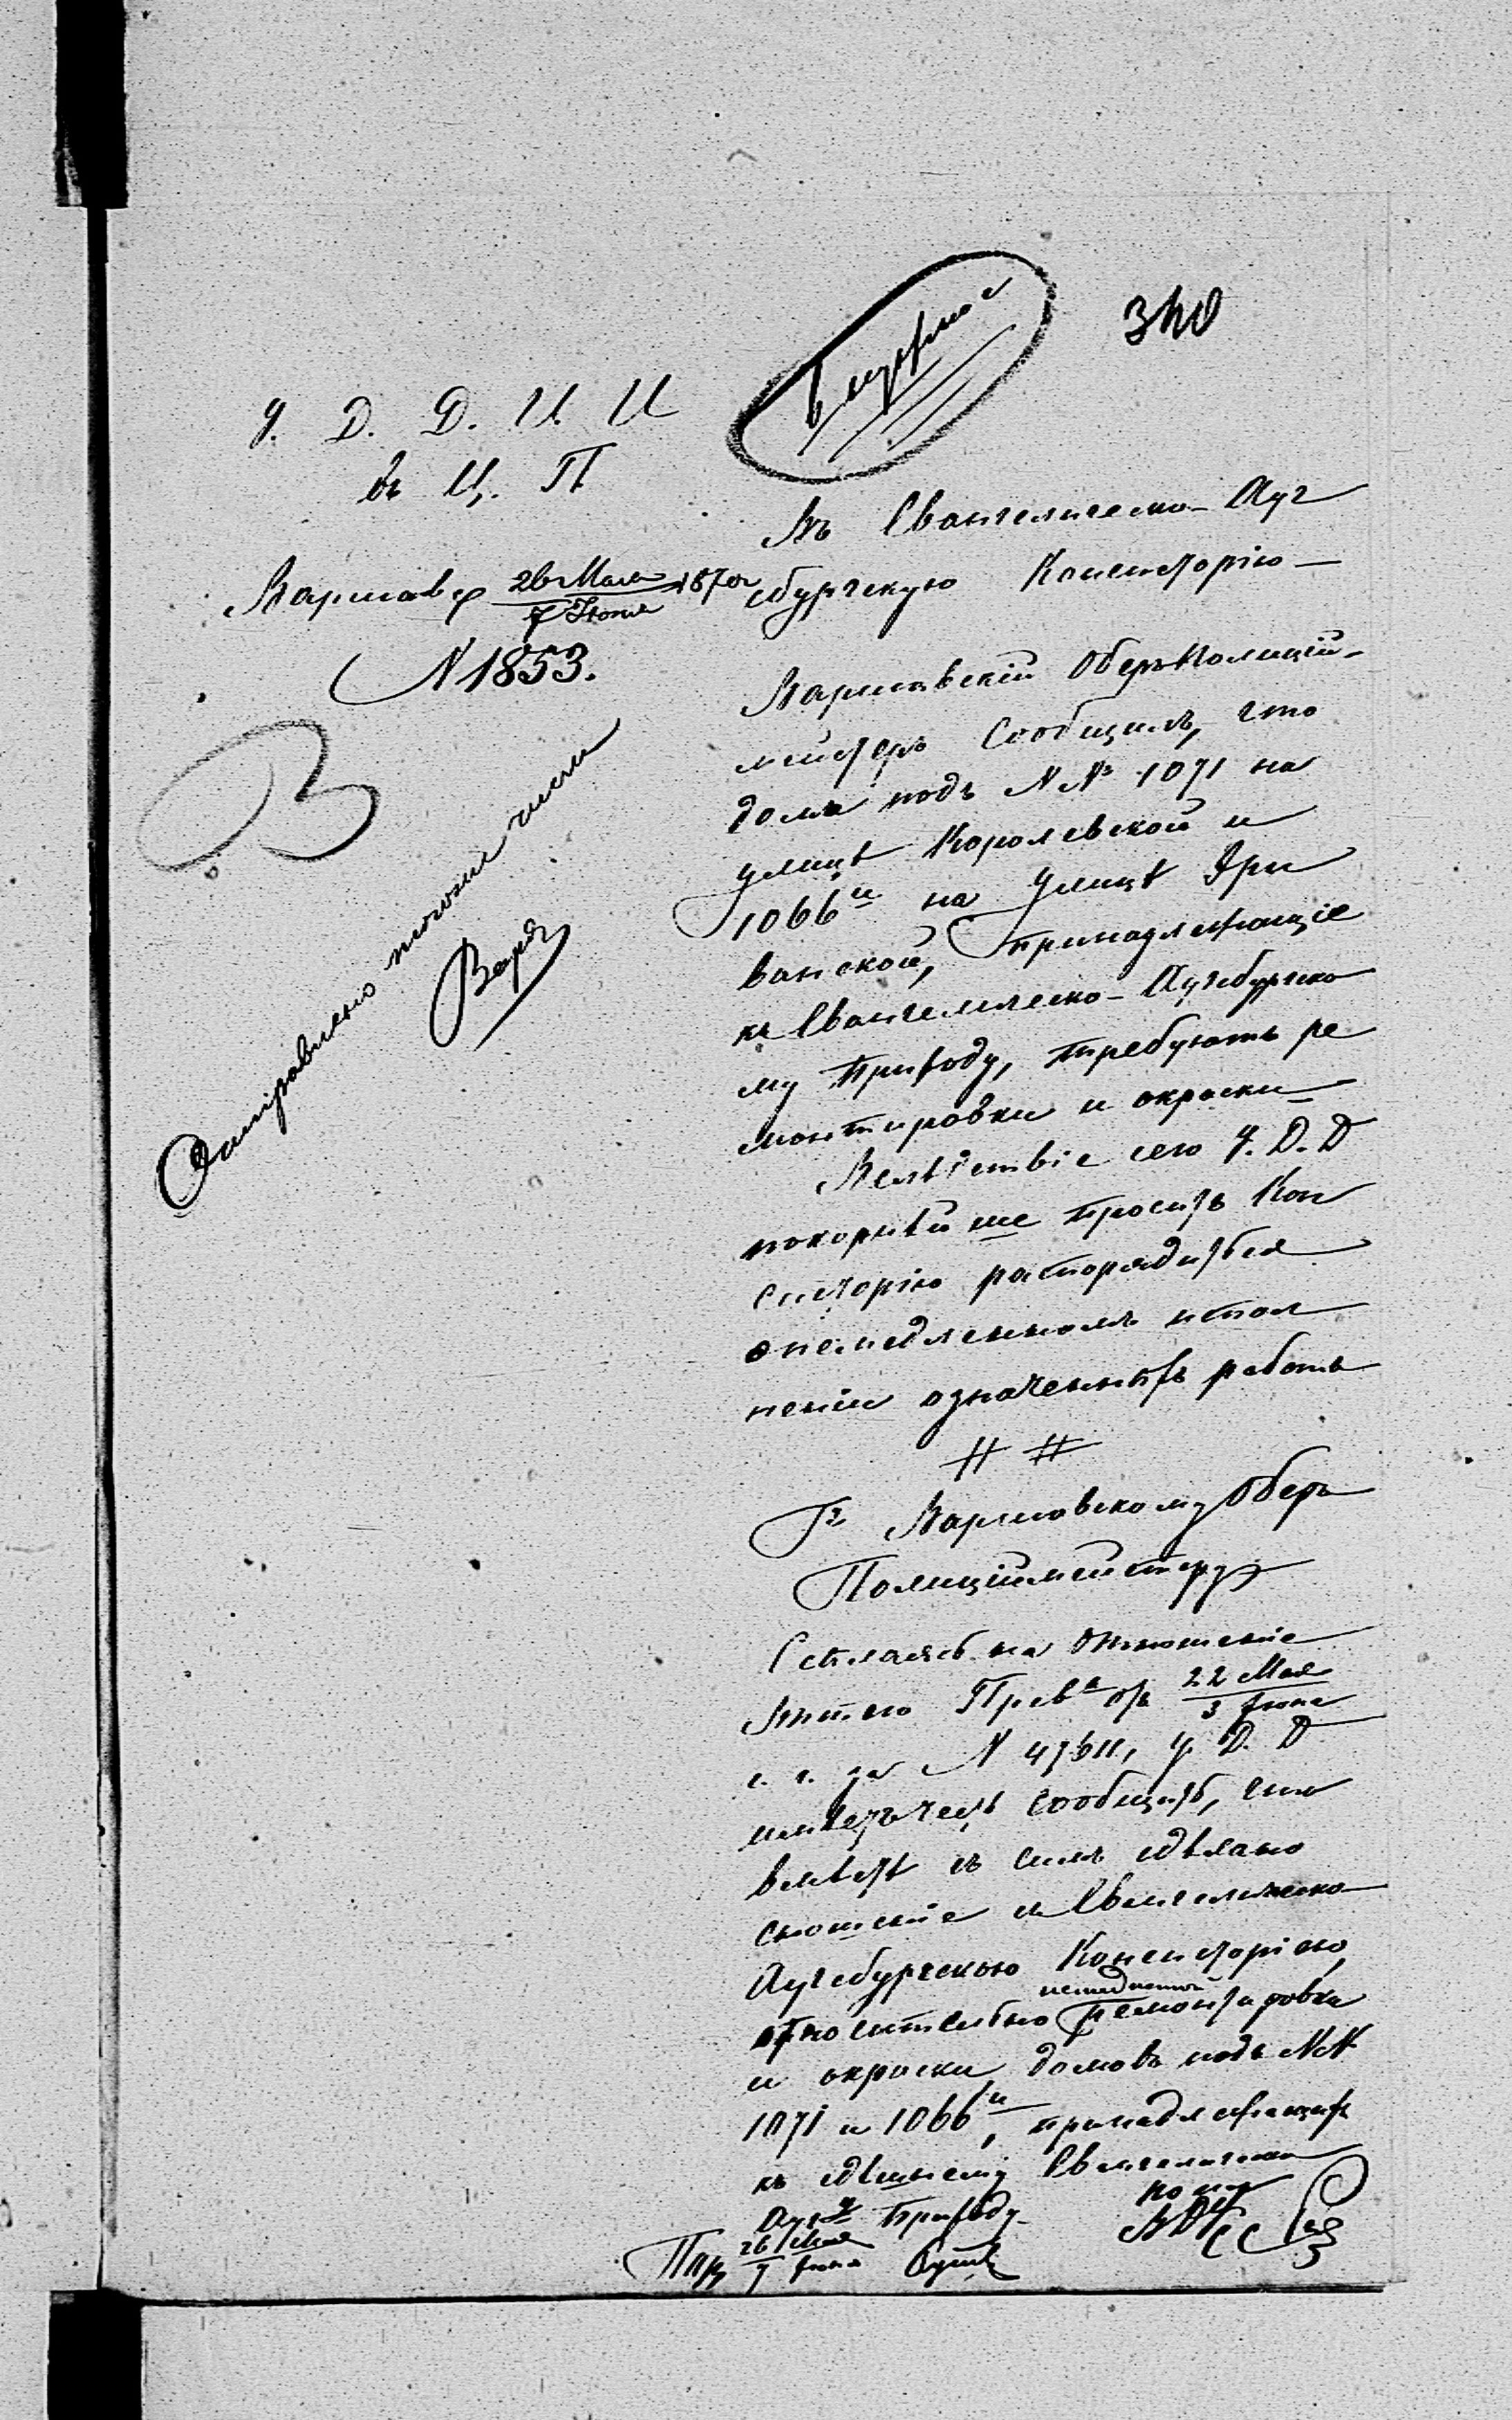 340
У. Д. Д. И. И
въ Ц. П
Варшава 26 Мая / 7 Июня 1870
N 1853.
Отправлено тогоже числа
Въ Евангелическо-Ауг
сбургскую Консисторію
Варшавскій Оберъ-Полиціи-
мейстеръ сообщилъ, что
дома подъ NN 1071 на
улицѣ Королевской и
1066 и на улицѣ Эри
ванской, принадлежащіе
къ Евангелическо-Аугсбургско
му Приходу, требуютъ ре
монтировки и окраски
Вслѣдствіе сего У. Д. Д
покорнѣйше проситъ Кон
систорію распорядиться
о немедленномъ испол
неніи означенныхъ работъ
# #
Гу Варшавскому Оберъ
Полиціймейстеру
Ссылаясь на отношеніе
Вашего Прев. отъ 22 Мая / 3 Іюня
с. г. за N 47611, У. Д. Д
имѣетъ честь сообщить, что
вмѣстѣ съ симъ сдѣлано
сношеніе съ Евангелическо
Аугсбургскою Консисторіею,
относительно немедленной ремонтировки
и окраски домовъ подъ NN
1071 и 1066 и, принадлежащихъ
къ здѣшнему Евангелическо
Ауг. Приходу
26 Мая / 7 Іюня